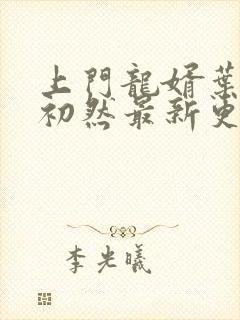 上門龍婿葉
初然最新更
李光曦